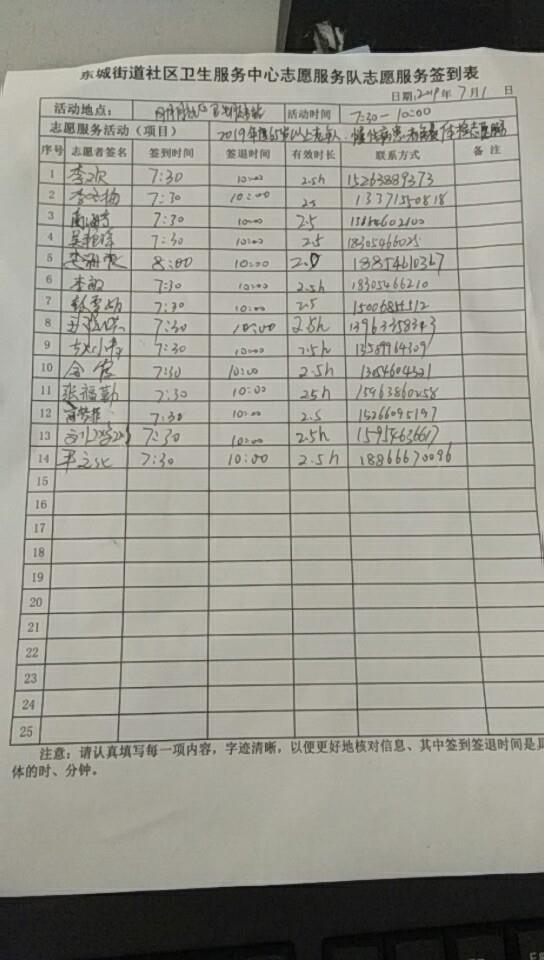 东城街道社区卫生服务中心志愿服务队志愿服务签到表
日期:2019年7月1日
活动地点: 活动时间 7:30-10:00
志愿服务活动(项目) 2019年度65岁以上老年人、慢性病患者
序号 志愿者签名 签到时间 签退时间 有效时长 联系方式 备注
1 李欢 7:30 10:00 2.5h 15263889373
2 7:30 10:00 2.5 13371550818
3 7:30 10:00 2.5
4 7:30 10:00 2.5 18305466025
5 8:00 10:00 2.0 18854610367
6 李敏 7:30 10:00 2.5h 18305466210
7 7:30 10:00 2.5 15006854512
8 7:30 10:00 2.5h 13963358343
9 7:30 10:00 2.5h 13589964309
10 7:30 10:00 2.5h 13054604321
11 张福勤 7:30 10:00 2.5h 15963860258
12 7:30 10:00 2.5 15266095197
13 7:30 10:00 2.5h 15954636617
14 7:30 10:00 2.5h 18866670096
15
16
17
18
19
20
21
22
23
24
25
注意:请认真填写每一项内容,字迹清晰,以便更好地核对信息、其中签到签退时间是具
体的时、分钟。